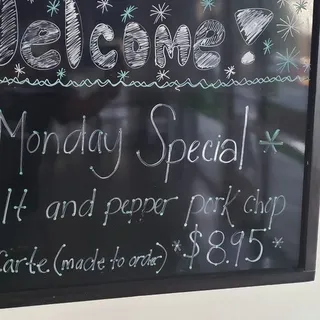 Welcome!
Monday Special *
lt and pepper pork chop
Carte (made to order) * $8.95 *